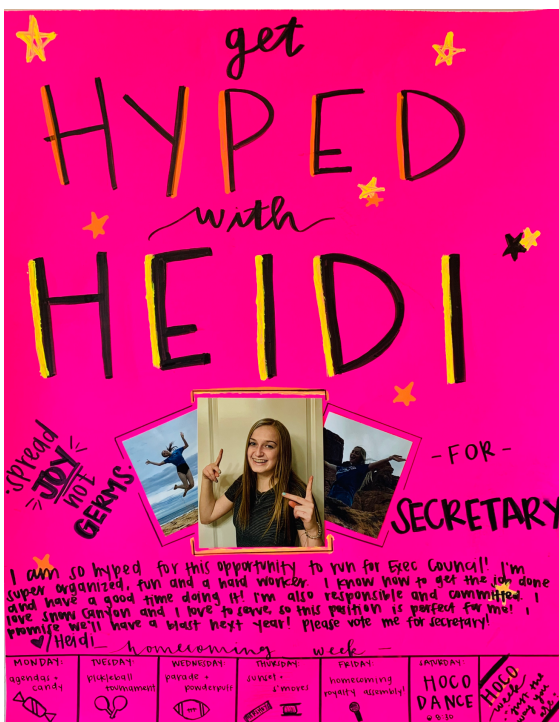 get
HYPED
with
HEIDI
spread
JOY
not
GERMS.
- FOR -
SECRETARY
I am so hyped for this opportunity to run for Exec Council! I'm
super organized, fun and a hard worker. I know how to get the job done
and have a good time doing it! I'm also responsible and committed. I
love snow canyon and I love to serve, so this position is perfect for me! I
promise we'll have a blast next year! please vote me for secretary!
♥/Heidi
homecoming week -
MONDAY:
agendas +
candy
TUESDAY:
pickleball
tournament
WEDNESDAY:
parade +
powderpuff
THURSDAY:
sunset +
s'mores
FRIDAY:
homecoming
royalty assembly!
SATURDAY:
HOCO
DANCE
8:30
HOCO
week
just the
way you